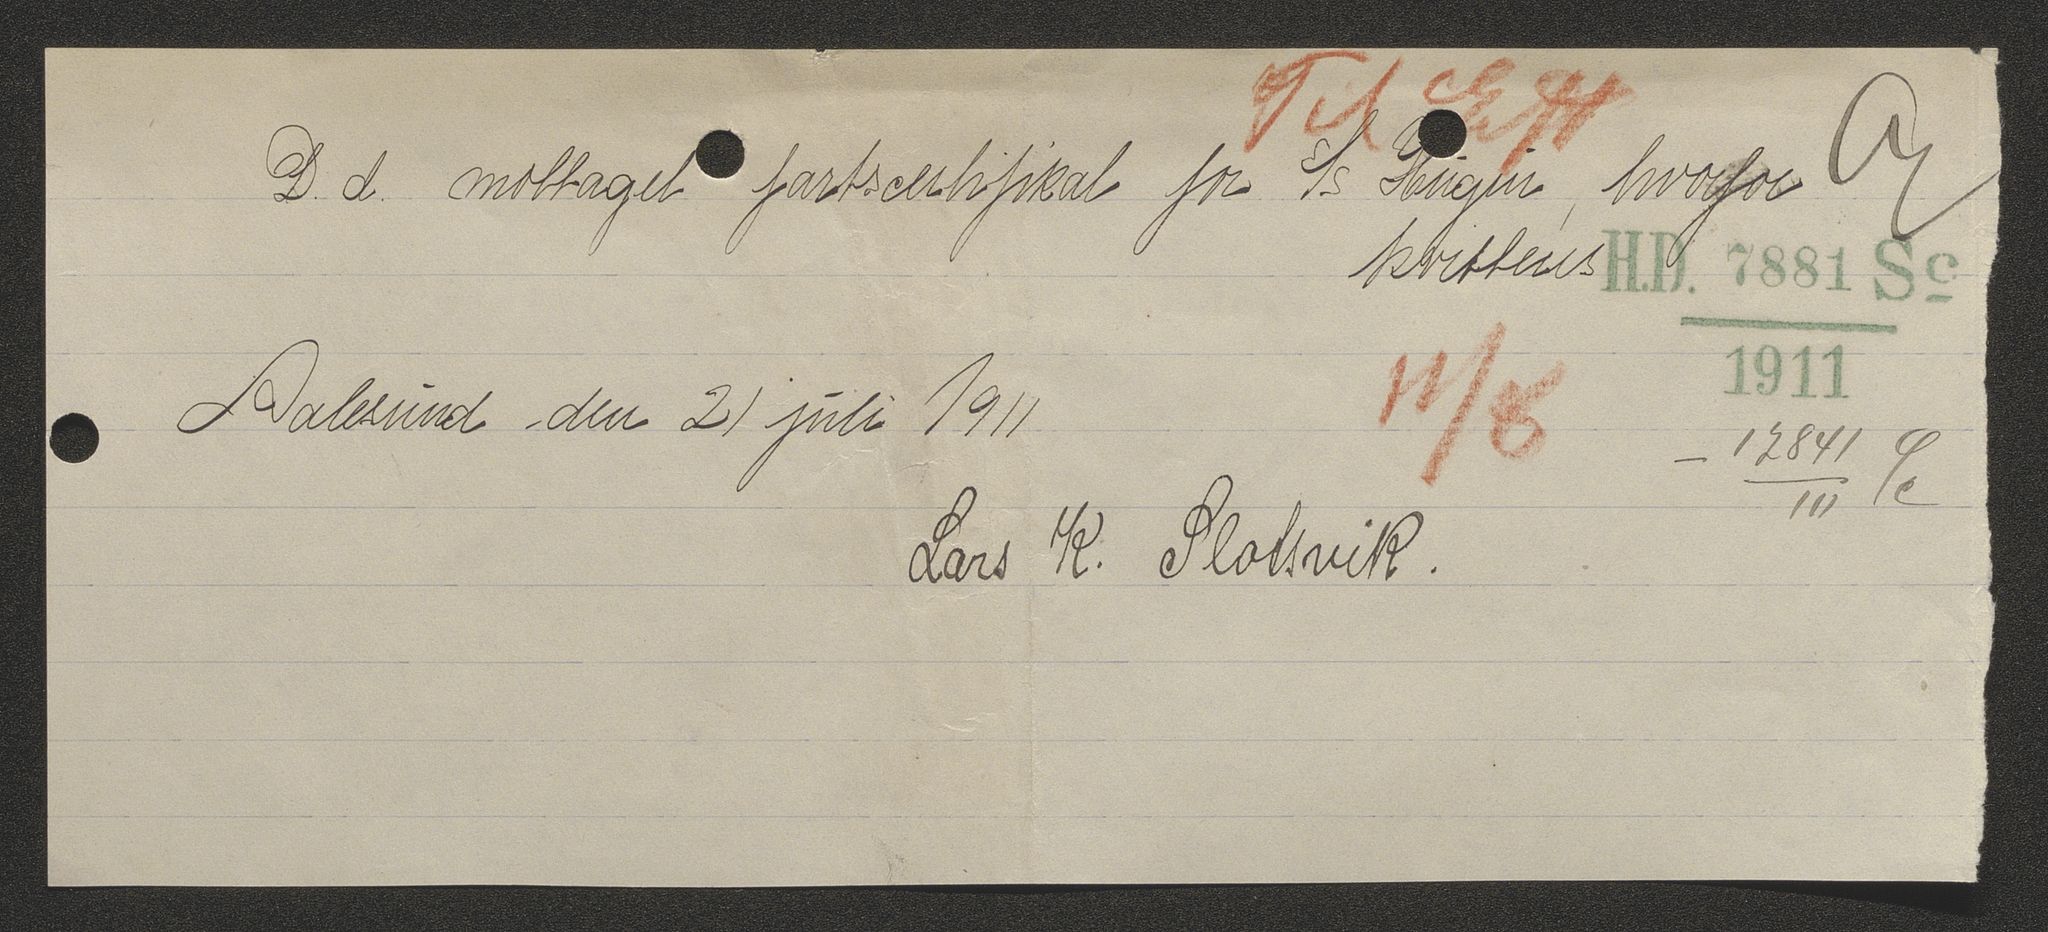 Til
D. d. mottaget fartscertifikat for S/s Hugin, hvorfor
kvittens
H.D. 7881 Sc
1911
Aalesund den 21 juli 1911
11/8
- 12841
111
Lars K. Slotsvik.